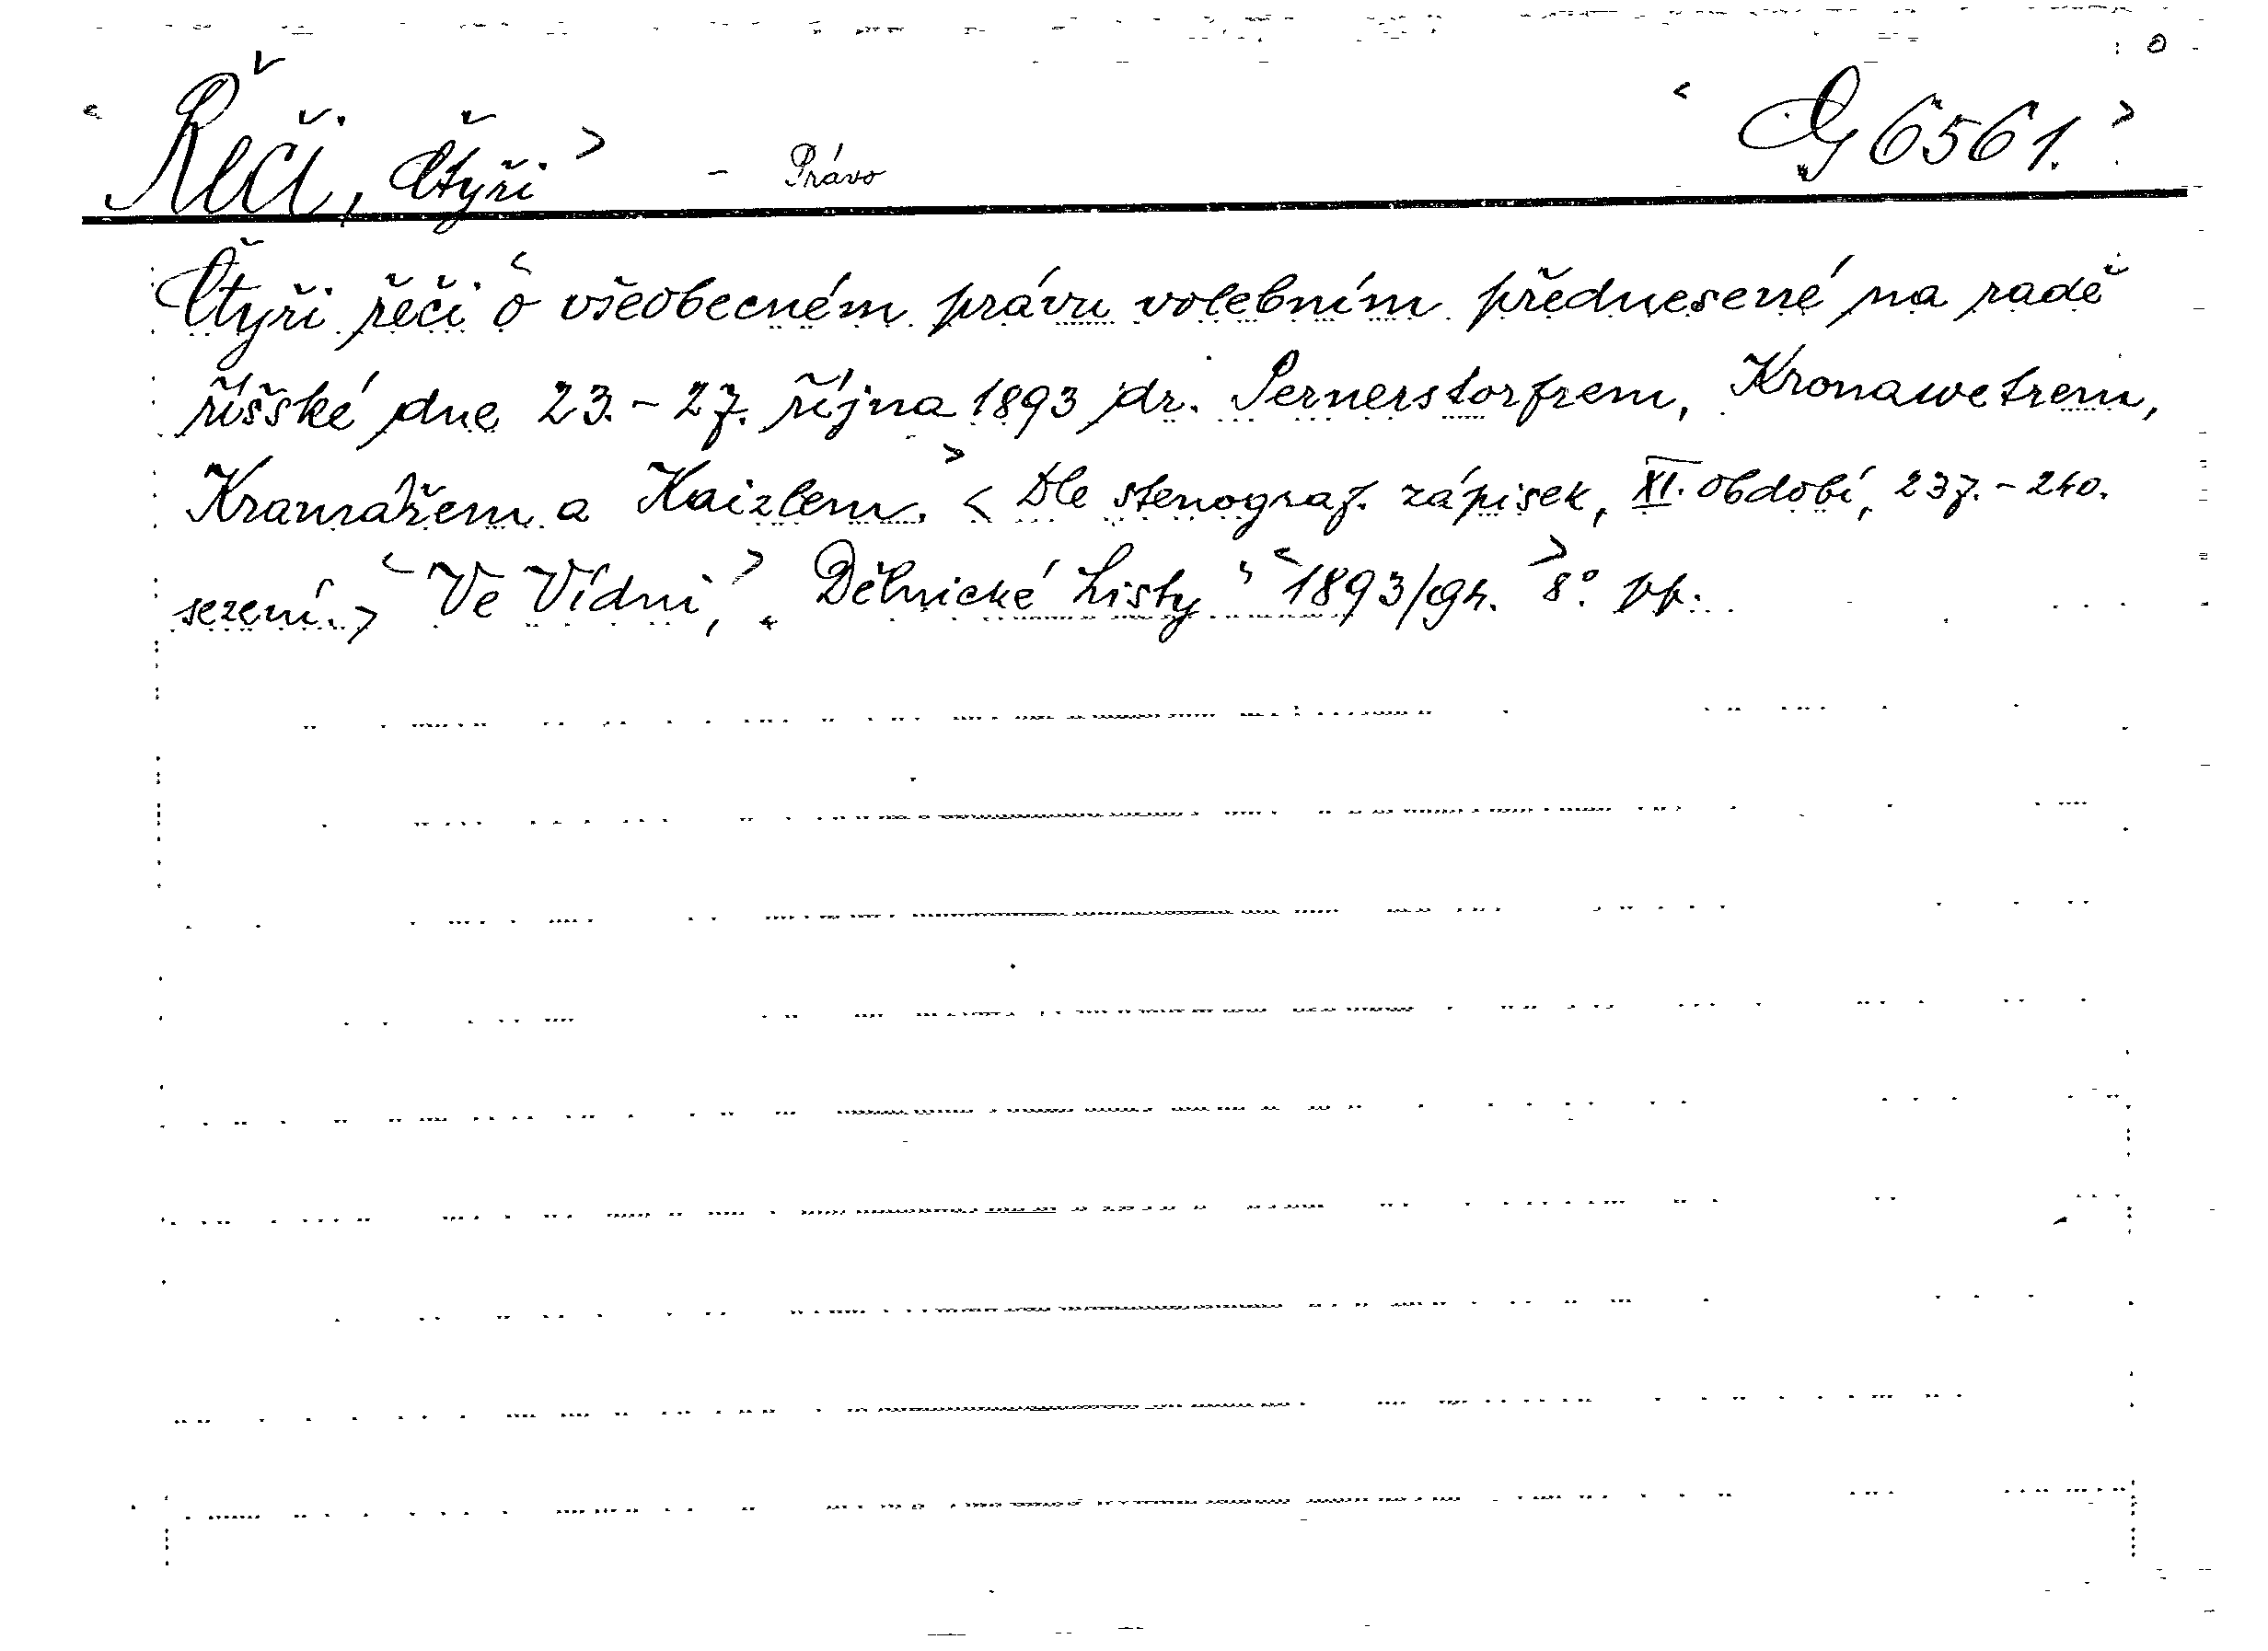 <Řeči, čtyři> - Právo <G 6561.>
Čtyři řeči <o všeobecném právu volebním přednesené na radě
říšské dne 23.-27. října 1893 dr. Pernerstorfrem, Kronawetrem,
Kramářem a Kaizlem.> <Dle stenograf. zápisek, XI. období, 237.-240.
sezení.> <Ve Vídni,> „Dělnické Listy" <1893/94.> 8°. pp.